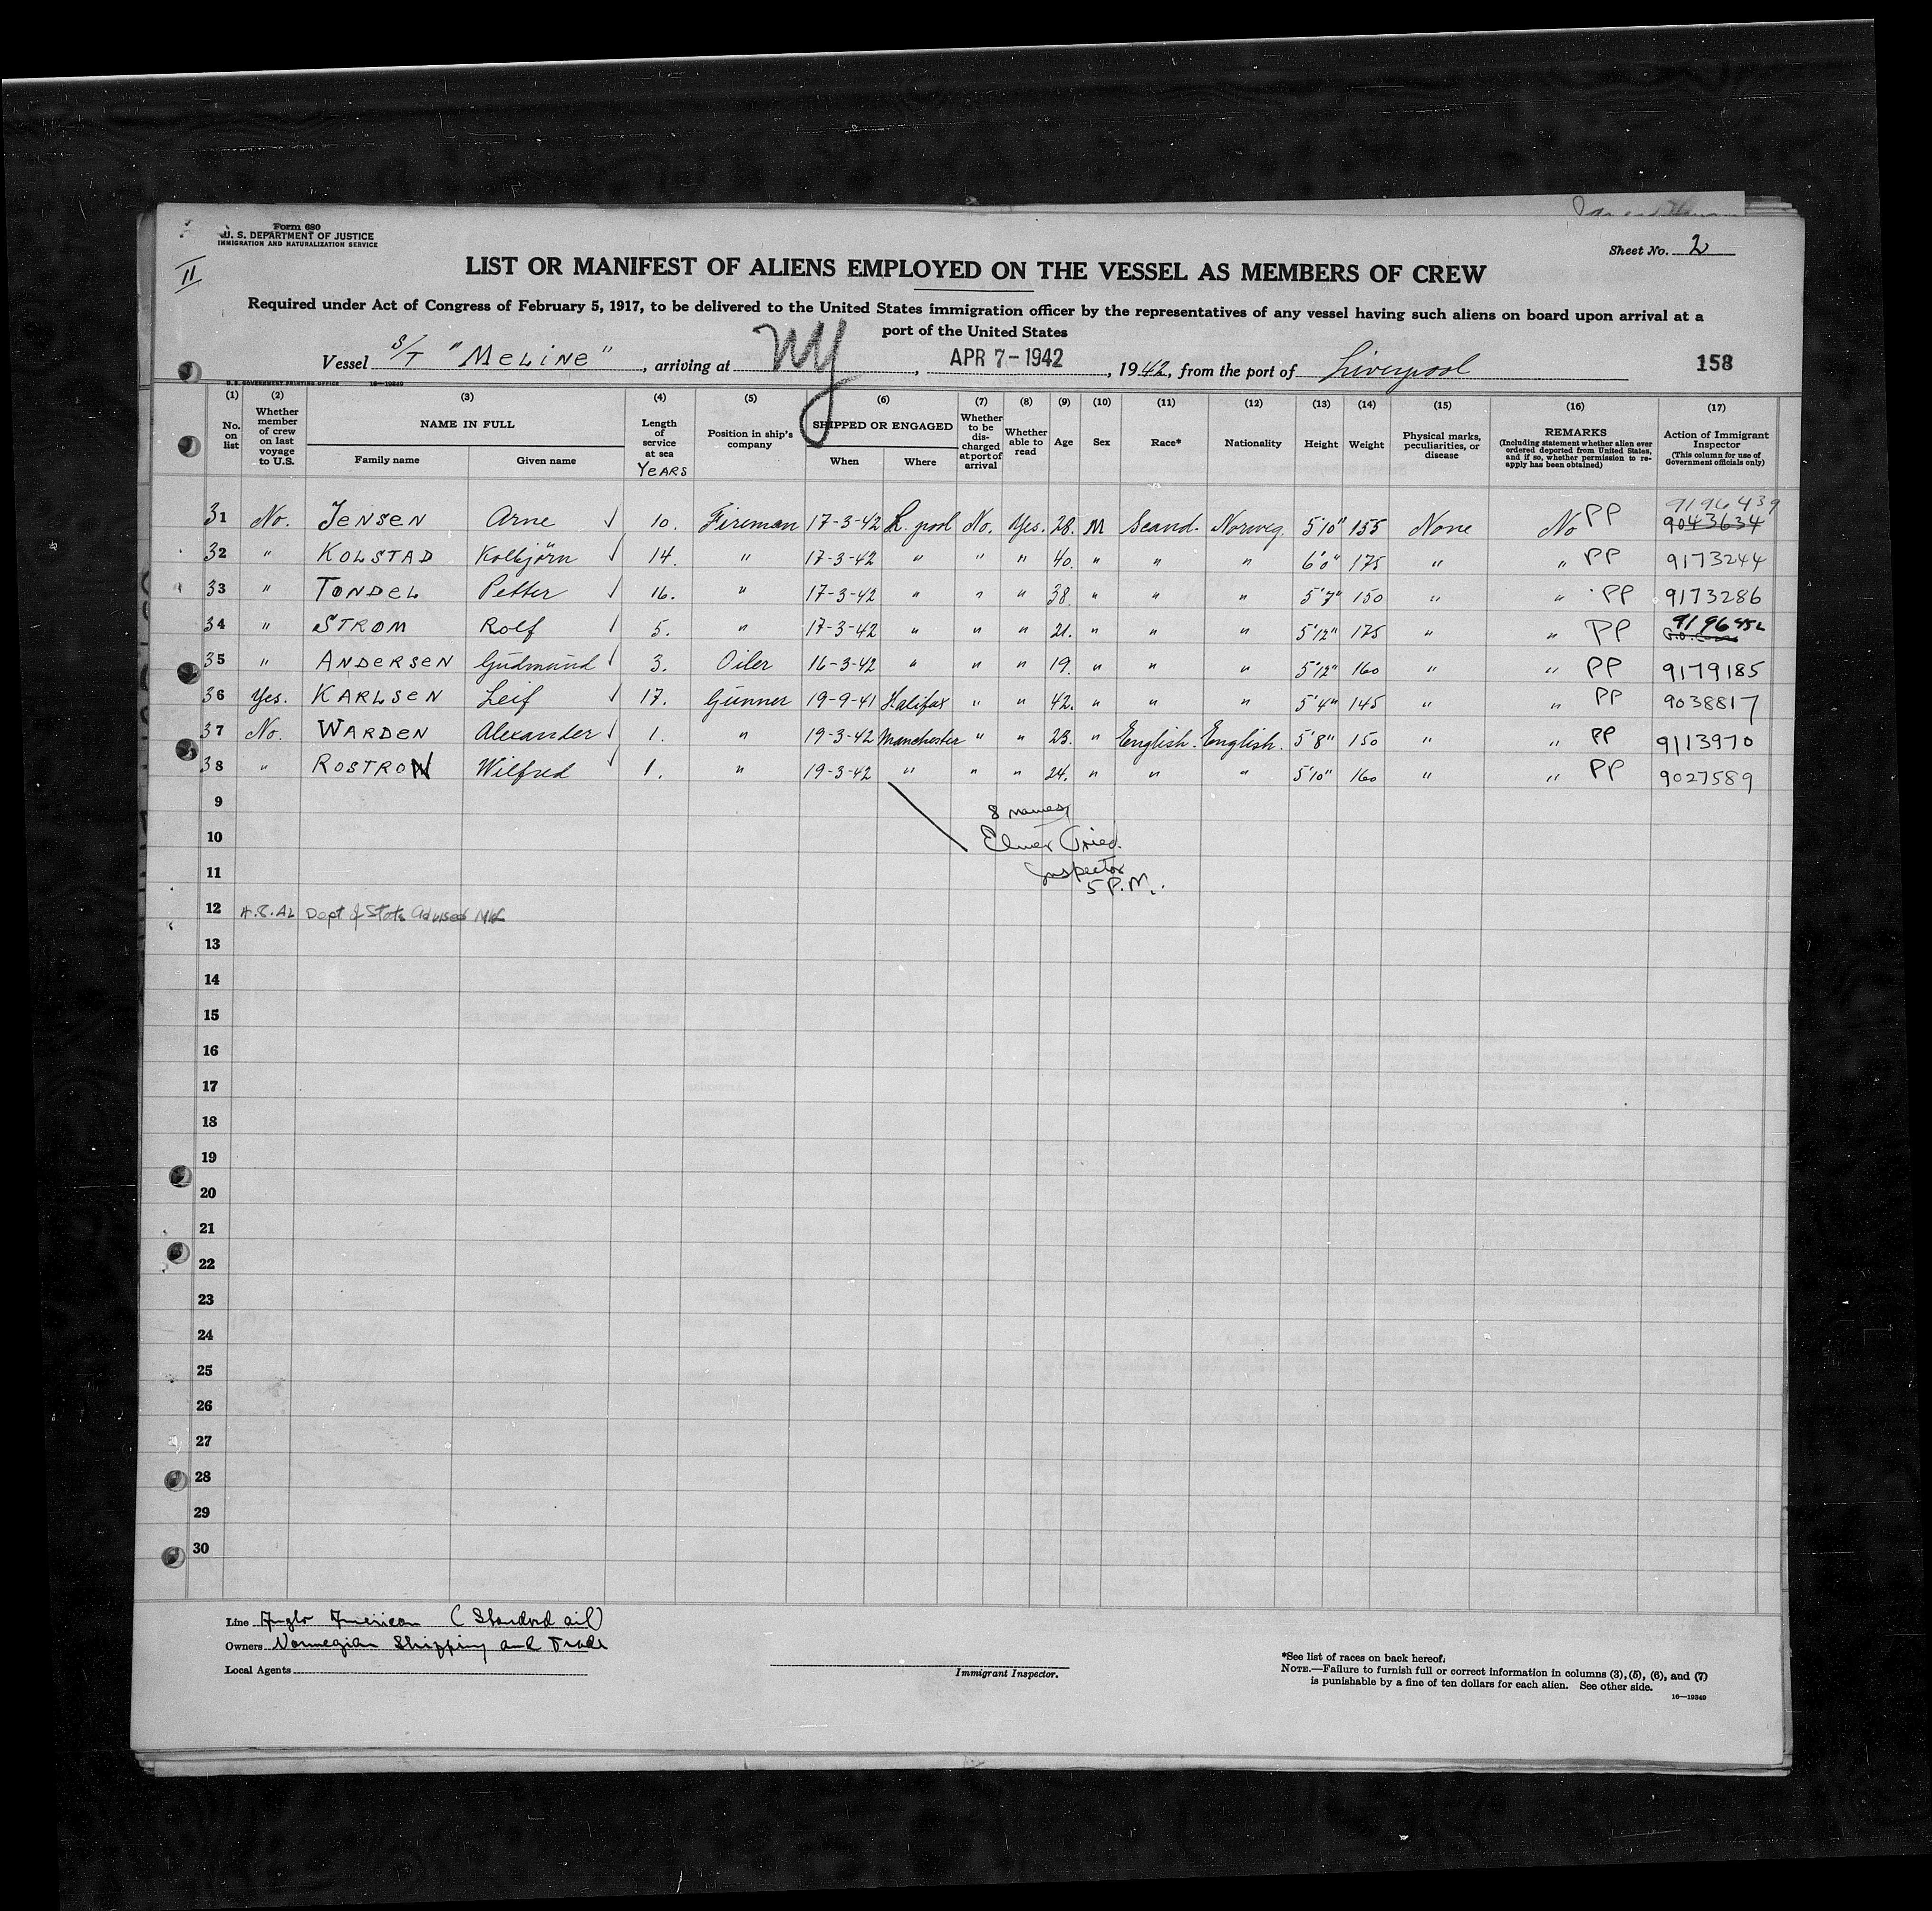 Form 680
U. S. DEPARTMENT OF JUSTICE
IMMIGRATION AND NATURALIZATION SERVICE
II
Sheet No. 2
LIST OR MANIFEST OF ALIENS EMPLOYED ON THE VESSEL AS MEMBERS OF CREW
Required under Act of Congress of February 5, 1917, to be delivered to the United States immigration officer by the representatives of any vessel having such aliens on board upon arrival at a
port of the United States
Vessel S/T "MELINE", arriving at NY, APR 7-1942, 1942, from the port of Liverpool 158
U. S. GOVERNMENT PRINTING OFFICE 16—19349
(1) (2) (3) (4) (5) (6) (7) (8) (9) (10) (11) (12) (13) (14) (15) (16) (17)
No. on list Whether member of crew on last voyage to U.S. NAME IN FULL Family name Given name Length of service at sea YEARS Position in ship's company SHIPPED OR ENGAGED When Where Whether to be discharged at port of arrival Whether able to read Age Sex Race* Nationality Height Weight Physical marks, peculiarities, or disease REMARKS (Including statement whether alien ever ordered deported from United States, and if so, whether permission to reapply has been obtained) Action of Immigrant Inspector (This column for use of Government officials only)
9196439
31 No. JENSEN Arne √ 10. Fireman 17-3-42 L.pool No. Yes. 28. M Scand. Norweg. 5'10" 155 None No PP 9043634
32 " KOLSTAD Kolbjörn √ 14. " 17-3-42 " " " 40. " " " 6'0" 175 " " PP 9173244
33 " TONDEL Petter √ 16. " 17-3-42 " " " 38. " " " 5'7" 150 " " PP 9173286
34 " STROM Rolf √ 5. " 17-3-42 " " " 21. " " " 5'12" 175 " " PP 9196452
35 " ANDERSEN Gudmund √ 3. Oiler 16-3-42 " " " 19. " " " 5'12" 160 " " PP 9179185
36 Yes. KARLSEN Leif √ 17. Gunner 19-9-41 Halifax " " 42. " " " 5'4" 145 " " PP 9038817
37 No. WARDEN Alexander √ 1. " 19-3-42 Manchester " " 23. " English. English. 5'8" 150 " " PP 9113970
38 " ROSTRON Wilfred √ 1. " 19-3-42 " " " 24. " " " 5'10" 160 " " PP 9027589
9
8 names
10
Elmer Fried.
11
Inspector
5 P.M.
12 Dept of State Advised
13
14
15
16
17
18
19
20
21
22
23
24
25
26
27
28
29
30
Line Anglo American (Standard oil)
Owners Norwegian Shipping and Trade
Local Agents
Immigrant Inspector.
*See list of races on back hereof.
NOTE.—Failure to furnish full or correct information in columns (3), (5), (6), and (7)
is punishable by a fine of ten dollars for each alien. See other side.
16—19349